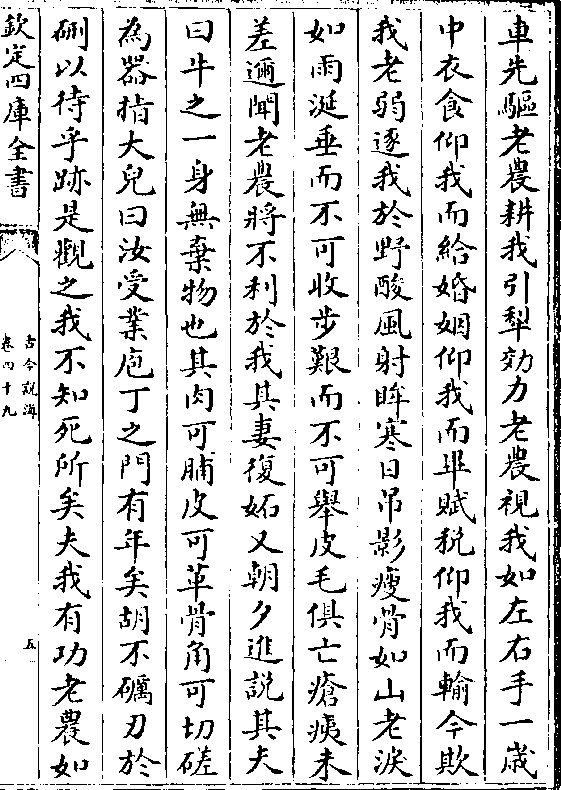 車先驅老農耕我引犁効力老農視我如左右手一歲
中衣食仰我而給婚姻仰我而畢賦稅仰我而輸今欺
我老弱逐我於野酸風射眸寒日吊影瘦骨如山老淚
如雨涎垂而不可收步艱而不可舉皮毛俱亡瘡痍未
差邇聞老農將不利於我其妻復妬又朝夕進說其夫
曰牛之一身無棄物也其肉可脯皮可革骨角可切磋
為器指大兒曰汝受業庖丁之門有年矣胡不礪刃於
硎以待乎跡是觀之我不知死所矣夫我有功老農如
欽定四庫全書
古今說海
卷四十九
五